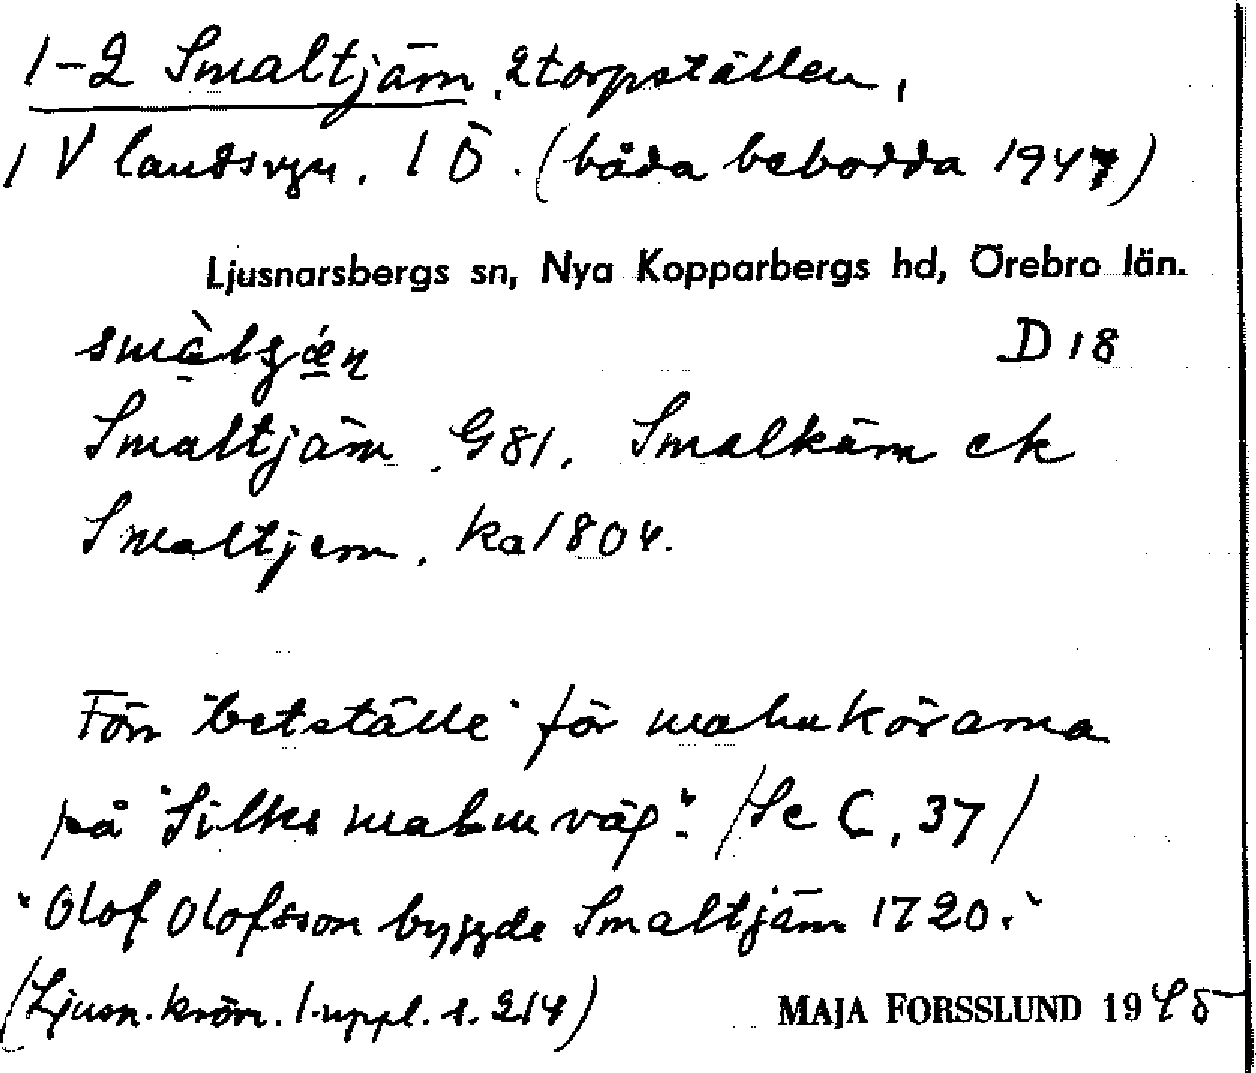 1-2 Smaltjärn, 2 torpställen,
1 V landsvgn. 1 Ö. (båda bebodda 1947)
Ljusnarsbergs sn, Nya Kopparbergs hd, Örebro län.
D 18
Smaltjärn. G 81. Smalkärn ek
Smaltjern. ka 1804.
Förr "betställe" för malmkörarna
på "Silks malmväg". (Se C, 37)
"Olof Olofsson byggde Smaltjärn 1720."
(Ljusn. krön. 1. uppl. s. 214)
MAJA FORSSLUND 1945